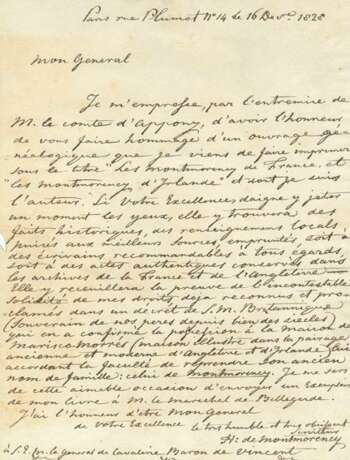 Paris rue Plumet N° 14 le 16 Dec.bre 1828
Mon Général
Je m'empresse, par l'entremise de
M. le comte d'Appony, d'avoir l'honneur
de vous faire hommage d'un ouvrage gé-
néalogique que je viens de faire imprimer
sous le titre "Les Montmorency de France, et
"les Montmorency d'Irlande" et dont je suis
l'auteur. Si Votre Excellence, daigne y jeter
un moment les yeux, elle y trouvera des
faits historiques, des renseignemens locals,
puisés aux meilleurs sources, empruntés soit à
des écrivains recommandables à tous égards
soit à des actes authentiques conservés dans
les archives de la France et de l'Angleterre
Elle y recueillera la preuve de l'incontestable
solidité de mes droits, déja reconnus et pro-
clamés dans un décret de S. M. Britannique
(Souverain de nos peres depuis bien des siècles)
qui en a confirmé la possession à la maison de
Marisco Morrès (maison illustre dans la pairage
ancienne et moderne d'Angleterre et d'Irlande) lui
accordant la faculté de reprendre son ancien
nom de famille: celui de Montmorency. Je me sers
de cette aimable occasion d'envoyer un Exemplaire
de mon livre à M. le Marechel de Bellegarde.
J'ai l'honneur d'être Mon General
de votre Excellence le très humble et très obéissant
Serviteur
H. de Montmorency
à S. E. le General de Cavalerie Baron de Vincent